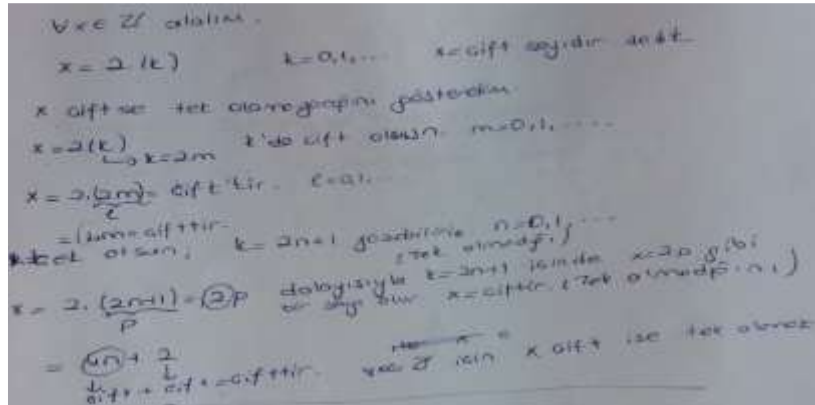 ∀x∈ Z alalım.
x = 2.(k) k=0,1,... x=çift sayıdır dedik
x çift ise tek olamayacağını gösterelim.
x=2(k) k'da çift olsun. m=0,1,.....
↳k=2m
x = 2.(2m) = çift'tir. l=0,1,..
l
=4m=çifttir.
k tek olsun, k=2n+1 n=0,1,...
x = 2.(2n+1)=2p dolayısıyla k=2n+1 için de x=2p gibi
p bir sayı olur x=çifttir. (Tek olmadığını)
= 4n + 2
çift + çift =çifttir. ∀x∈ Z için x çift ise tek olamaz